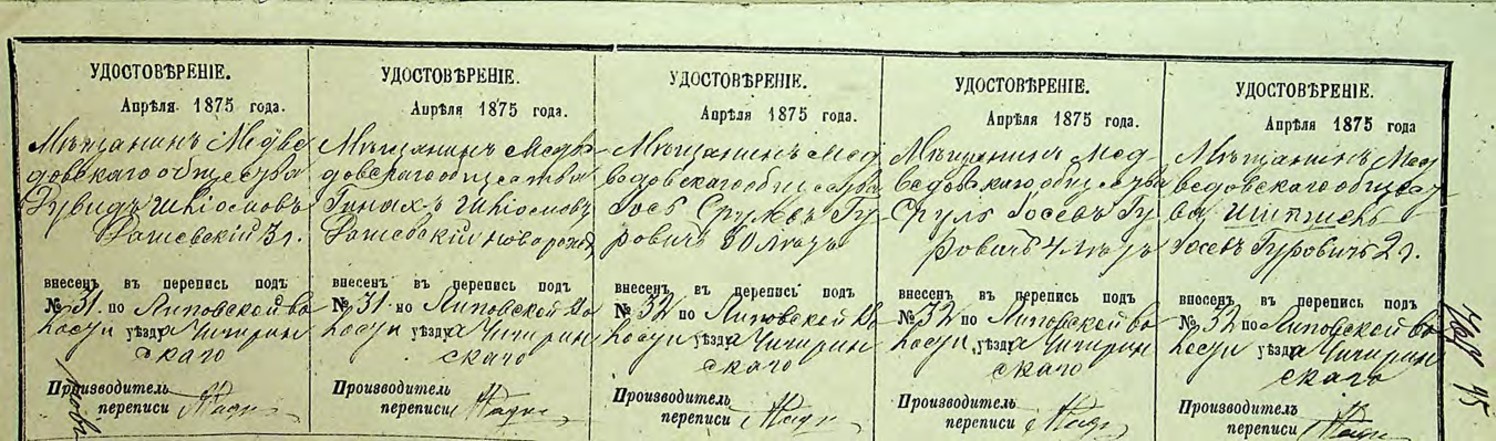 УДОСТОВѢРЕНІЕ.
Апрѣля 1875 года.
Мѣщанинъ Медве
довскаго общества
Рувидъ Шліомовъ
Рашевскій 3 г.
внесенъ въ перепись подъ
№ 31. по Липовской во
лости уѣзда Чигирин
скаго
Производитель
переписи
УДОСТОВѢРЕНІЕ.
Апрѣля 1875 года.
Мѣщанинъ Медве
довскаго общества
Пинахъ Шліомовъ
Рашевскій новорожд
внесенъ въ перепись подъ
№ 31. по Липовской Во
лости уѣзда Чигирин
скаго
Производитель
переписи
УДОСТОВѢРЕНІЕ.
Апрѣля 1875 года.
Мѣщанинъ Мед
ведовскаго общества
Іось Срулев Гу
ровичъ 60 лѣтъ
внесенъ въ перепись подъ
№ 32 по Липовской Во
лости уѣзда Чигирин
скаго
Производитель
переписи
УДОСТОВѢРЕНІЕ.
Апрѣля 1875 года.
Мѣщанинъ Мед-
ведовскаго общества
Сруль Іосевъ Гу
ровичъ 4 лѣтъ
внесенъ въ перепись подъ
№ 32 по Липовской во
лости уѣзда Чигирин
скаго
Производитель
переписи
УДОСТОВѢРЕНІЕ.
Апрѣля 1875 года
Мѣщанинъ Мед
ведовскаго общест
ва
Іосевъ Гуровичъ 2 г.
внесенъ въ перепись подъ
№ 32 по Липовской Во
лости уѣзда Чигирин
скаго
Производитель
переписи